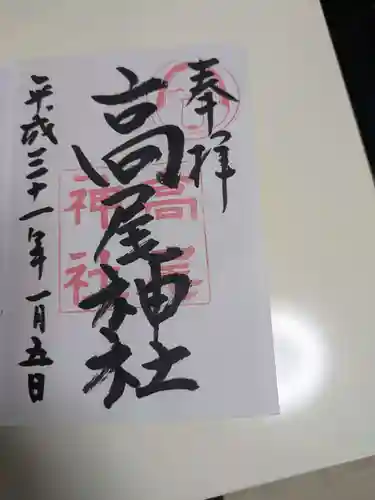 奉拝
高尾神社
平成三十一年一月五日
高尾
神社